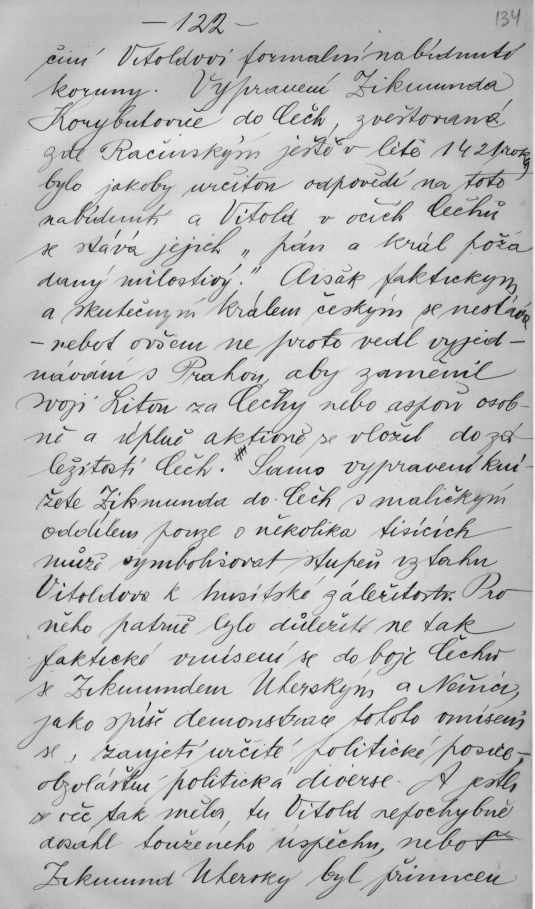 — 122 —
134
činí Vitoldovi formalní nabídnutí
koruny. Vypravení Zikmunda
Korybutoviče do Čech, zvěstované
zde Račinským ještě v létě 1421 roku,
bylo jakoby určitou odpovědí na toto
nabídnutí a Vitold v očích Čechů
se stává jejich „pán a král požá
daný milostivý." Avšak faktickým
a skutečným králem českým se nestává
— neboť ovšem ne proto vedl vyjed-
návání s Prahou, aby zaměnil
svojí Litvu za Čechy nebo aspoň osob-
ně a úplně aktivně se vložil do zá
ležitostí Čech. Samo vypravení kní
žete Zikmunda do Čech s maličkým
oddílem pouze o několika tisících
může symbolisovat stupeň vztahu
Vitoldova k husitské záležitosti. Pro
něho patrně bylo důležité ne tak
faktické vmísení se do boje Čechů
se Zikmundem Uherským a Němci,
jako spíš demonstrace tohoto vmísení
se, zaujetí určité politické posice,
obzvláštní politická diverse. A jestli
věc tak měla, tu Vitold nepochybně
dosáhl touženého úspěchu, neboť
Zikmund Uherský byl přinucen